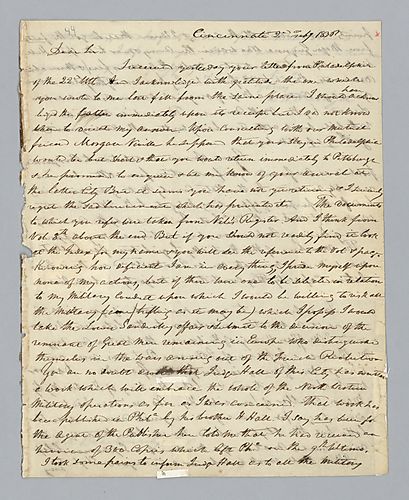 Cincinnati 2d Feby 1836
Dear Sir
I received yesterday your letter from Philadelphia
of the 22d Ult. An Acknowledge with gratitude the one which
you wrote to me last fall from the same place I should have
the latter immediately upon its receipt but I did not know
where to direct my answer Upon consulting with our mutual
friend Morgan Neville he supposed that your stay in Philadelphia
would be but short & that you would return immediately to Pittsburgh
& he promised to enquire & let me know of your arrival at
the latter City But it seems you have not yet returned & I sincerely
regret the sad bereavement which has prevented it. The documents
to which you refer are taken from Niles Register And I think from
Vol 5th about the end But if you should not readily find it look
at the Index for my name & you will see the reference to the Vol & page
Knowing how deficient I am in every thing, I pride myself upon
none of my actions, but if there was one to be selected in relation
to my Military Conduct upon which I would be willing to risk all
the Military fame (trifling as it may be) which I possess I would
take the Lower Sandusky affair & submit to the decision of the
remnant of Great Men remaining in Europe who distinguished
themselves in the wars arising out of the French Revolution
Judge Hall of this City has written
a work which will embrace the whole of the North Western
Military operations as far as I was concerned That work has
been published in Phila by his brother H Hall I say has been for
the agent of the Publisher here told me that he has received an
invoice of 300 Copies which left Pha on the 9th ultimo.
I took some pains to inform Judge Hall as to all the Military